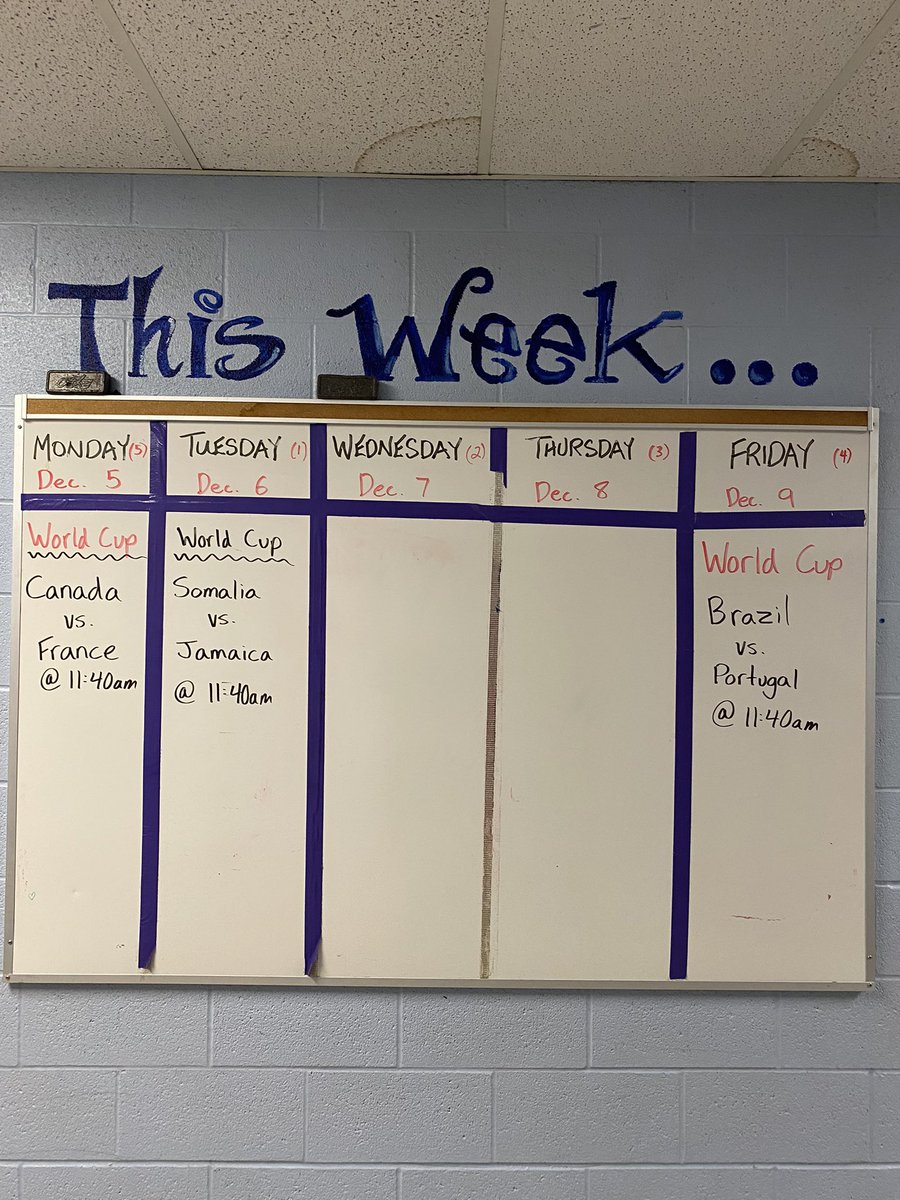 This Week...
MONDAY (5)
Dec. 5
World Cup
Canada
vs.
France
@ 11:40am
TUESDAY (1)
Dec. 6
World Cup
Somalia
vs.
Jamaica
@ 11:40am
WEDNESDAY (2)
Dec. 7
THURSDAY (3)
Dec. 8
FRIDAY (4)
Dec. 9
World Cup
Brazil
vs.
Portugal
@ 11:40am